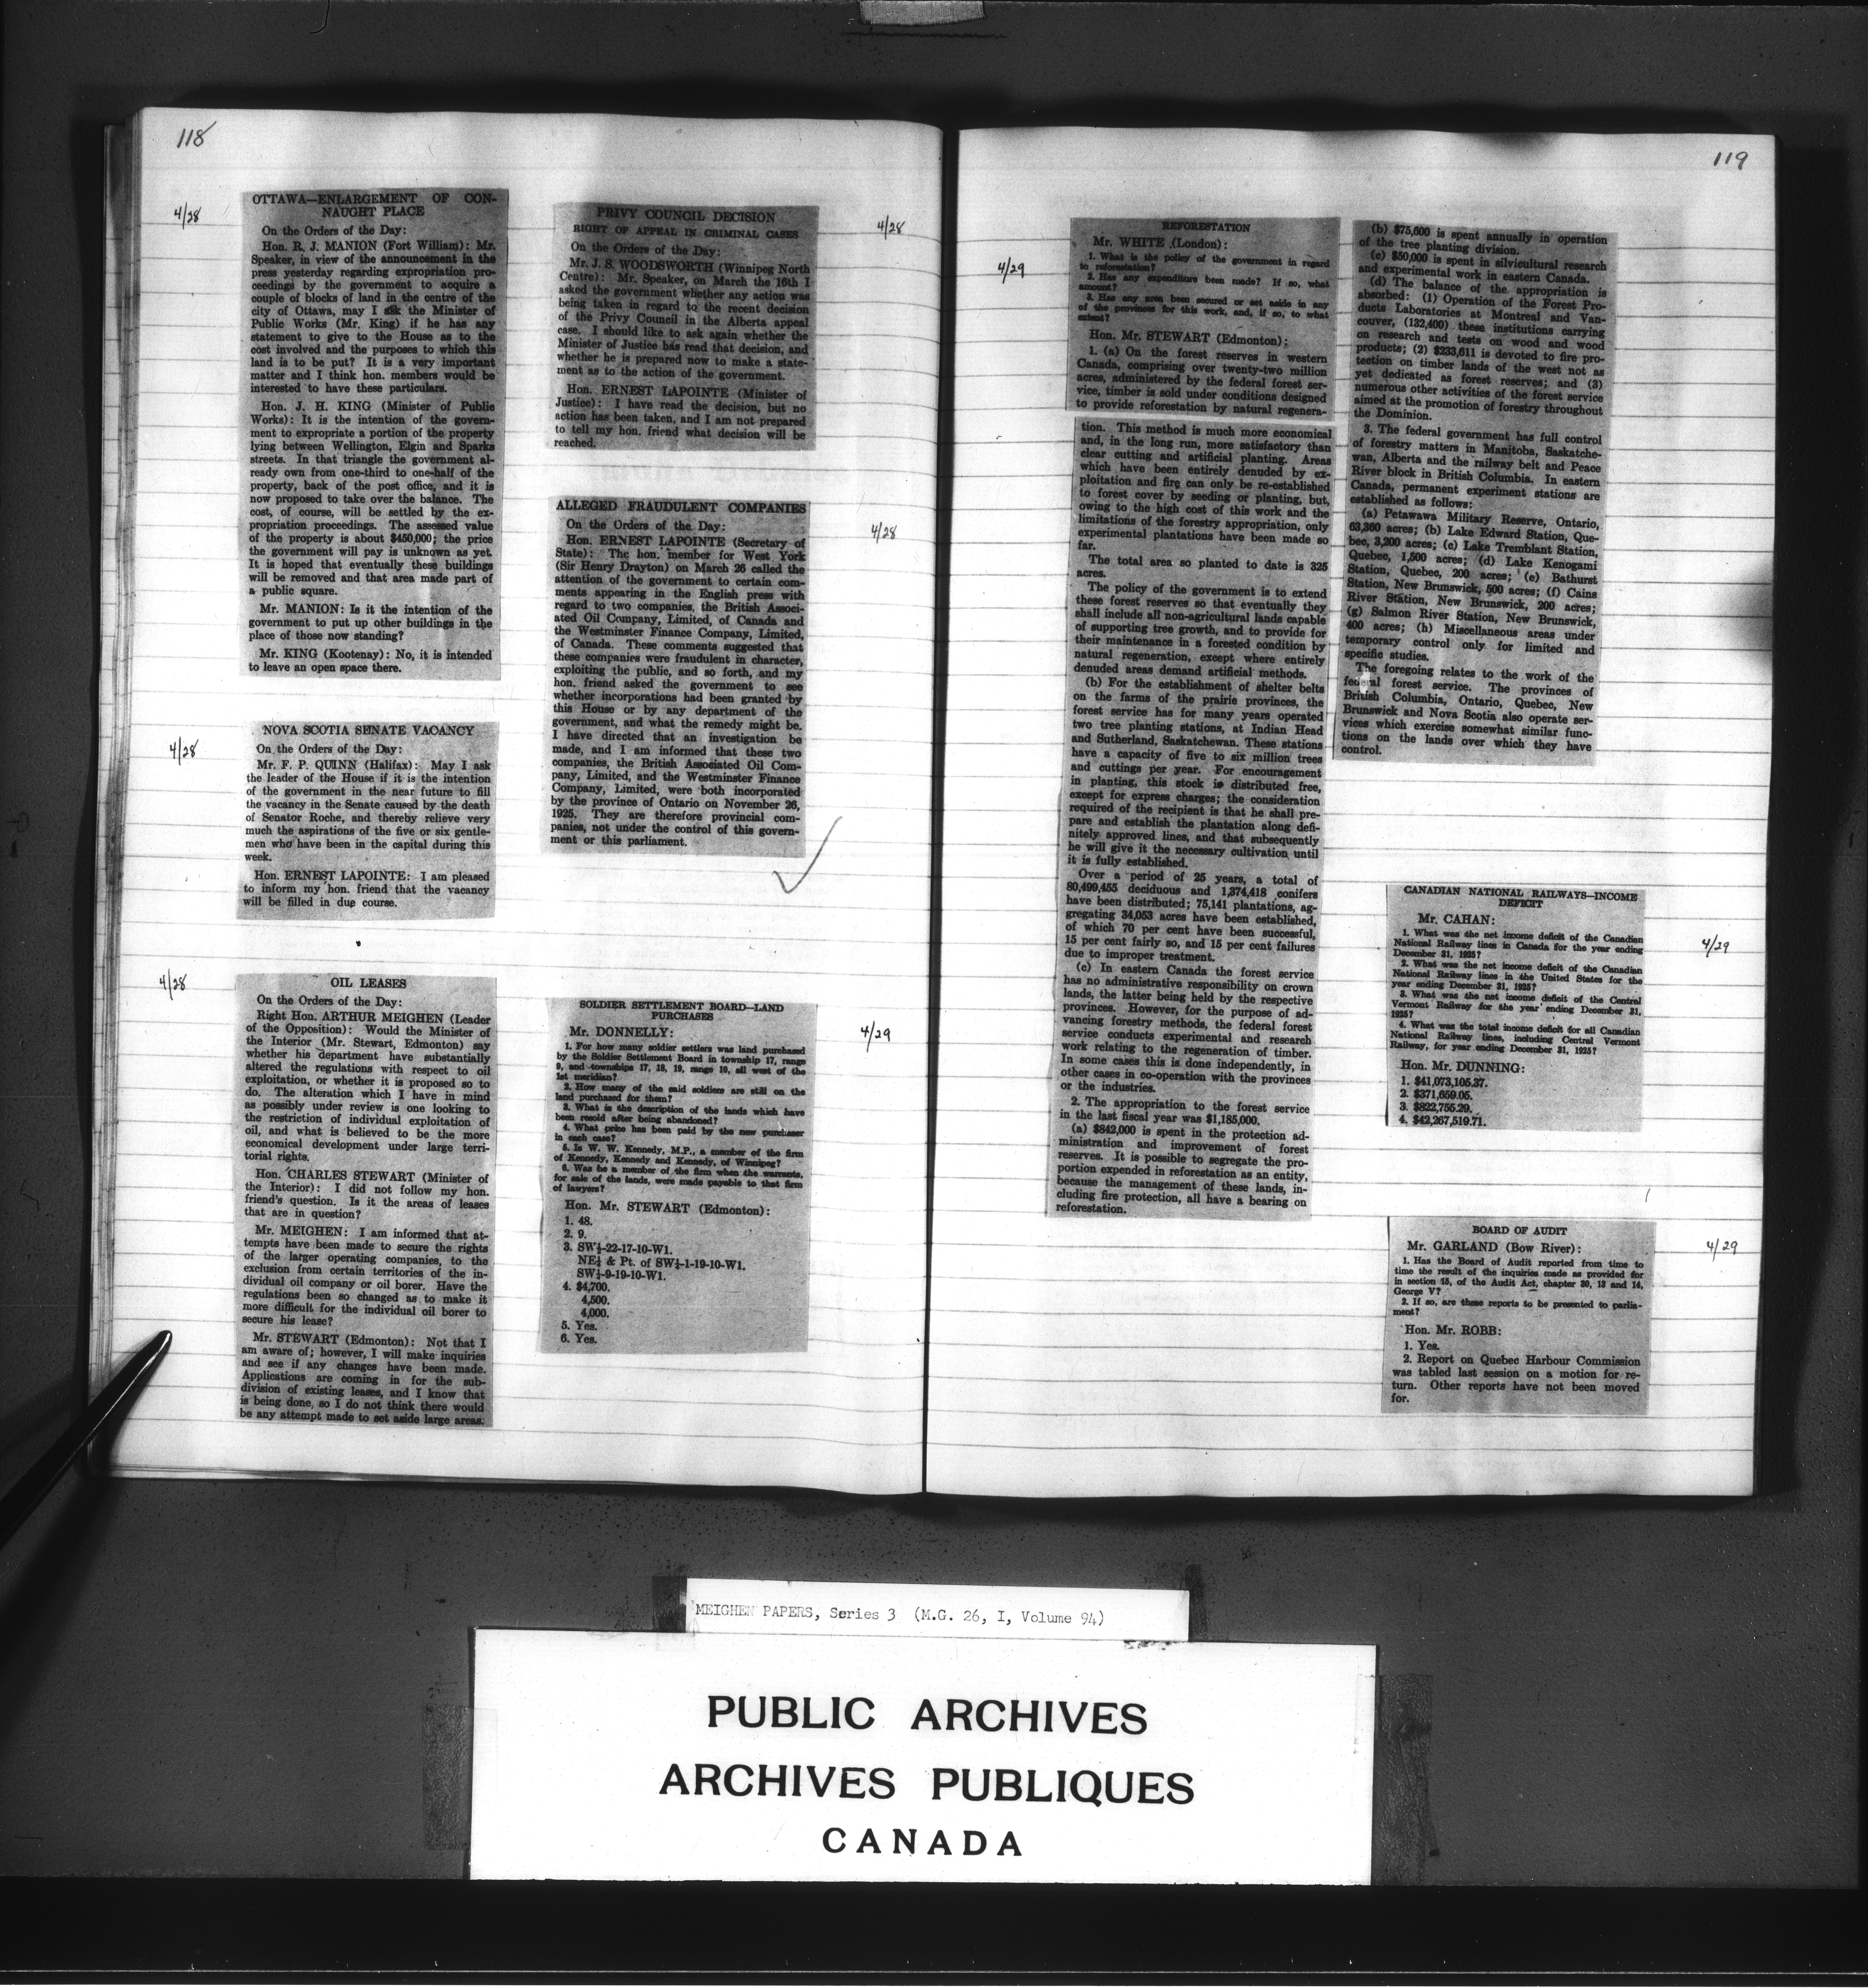 118
4/28
OTTAWA—ENLARGEMENT OF CON-
NAUGHT PLACE
On the Orders of the Day:
Hon. R. J. MANION (Fort William): Mr.
Speaker, in view of the announcement in the
press yesterday regarding expropriation pro-
ceedings by the government to acquire a
couple of blocks of land in the centre of the
city of Ottawa, may I ask the Minister of
Public Works (Mr. King) if he has any
statement to give to the House as to the
cost involved and the purposes to which this
land is to be put? It is a very important
matter and I think hon. members would be
interested to have these particulars.
Hon. J. H. KING (Minister of Public
Works): It is the intention of the govern-
ment to expropriate a portion of the property
lying between Wellington, Elgin and Sparks
streets. In that triangle the government al-
ready own from one-third to one-half of the
property, back of the post office, and it is
now proposed to take over the balance. The
cost, of course, will be settled by the ex-
propriation proceedings. The assessed value
of the property is about $450,000; the price
the government will pay is unknown as yet.
It is hoped that eventually these buildings
will be removed and that area made part of
a public square.
Mr. MANION: Is it the intention of the
government to put up other buildings in the
place of those now standing?
Mr. KING (Kootenay): No, it is intended
to leave an open space there.
4/28
NOVA SCOTIA SENATE VACANCY
On the Orders of the Day:
Mr. F. P. QUINN (Halifax): May I ask
the leader of the House if it is the intention
of the government in the near future to fill
the vacancy in the Senate caused by the death
of Senator Roche, and thereby relieve very
much the aspirations of the five or six gentle-
men who have been in the capital during this
week.
Hon. ERNEST LAPOINTE: I am pleased
to inform my hon. friend that the vacancy
will be filled in due course.
4/28
OIL LEASES
On the Orders of the Day:
Right Hon. ARTHUR MEIGHEN (Leader
of the Opposition): Would the Minister of
the Interior (Mr. Stewart, Edmonton) say
whether his department have substantially
altered the regulations with respect to oil
exploitation, or whether it is proposed so to
do. The alteration which I have in mind
as possibly under review is one looking to
the restriction of individual exploitation of
oil, and what is believed to be the more
economical development under large terri-
torial rights.
Hon. CHARLES STEWART (Minister of
the Interior): I did not follow my hon.
friend's question. Is it the areas of leases
that are in question?
Mr. MEIGHEN: I am informed that at-
tempts have been made to secure the rights
of the larger operating companies, to the
exclusion from certain territories of the in-
dividual oil company or oil borer. Have the
regulations been so changed as to make it
more difficult for the individual oil borer to
secure his lease?
Mr. STEWART (Edmonton): Not that I
am aware of; however, I will make inquiries
and see if any changes have been made.
Applications are coming in for the sub-
division of existing leases, and I know that
is being done, so I do not think there would
be any attempt made to set aside large areas.
4/28
PRIVY COUNCIL DECISION
RIGHT OF APPEAL IN CRIMINAL CASES
On the Orders of the Day:
Mr. J. S. WOODSWORTH (Winnipeg North
Centre): Mr. Speaker, on March the 16th I
asked the government whether any action was
being taken in regard to the recent decision
of the Privy Council in the Alberta appeal
case. I should like to ask again whether the
Minister of Justice has read that decision, and
whether he is prepared now to make a state-
ment as to the action of the government.
Hon. ERNEST LAPOINTE (Minister of
Justice): I have read the decision, but no
action has been taken, and I am not prepared
to tell my hon. friend what decision will be
reached.
4/28
ALLEGED FRAUDULENT COMPANIES
On the Orders of the Day:
Hon. ERNEST LAPOINTE (Secretary of
State): The hon. member for West York
(Sir Henry Drayton) on March 26 called the
attention of the government to certain com-
ments appearing in the English press with
regard to two companies, the British Associ-
ated Oil Company, Limited, of Canada and
the Westminster Finance Company, Limited,
of Canada. These comments suggested that
these companies were fraudulent in character,
exploiting the public, and so forth, and my
hon. friend asked the government to see
whether incorporations had been granted by
this House or by any department of the
government, and what the remedy might be.
I have directed that an investigation be
made, and I am informed that these two
companies, the British Associated Oil Com-
pany, Limited, and the Westminster Finance
Company, Limited, were both incorporated
by the province of Ontario on November 26,
1925. They are therefore provincial com-
panies, not under the control of this govern-
ment or this parliament.
4/29
SOLDIER SETTLEMENT BOARD—LAND
PURCHASES
Mr. DONNELLY:
1. For how many soldier settlers was land purchased
by the Soldier Settlement Board in township 17, range
9, and townships 17, 18, 19, range 10, all west of the
1st meridian?
2. How many of the said soldiers are still on the
land purchased for them?
3. What is the description of the lands which have
been resold after being abandoned?
4. What price has been paid by the new purchaser
in each case?
5. Is W. W. Kennedy, M.P., a member of the firm
of Kennedy, Kennedy and Kennedy, of Winnipeg?
6. Was he a member of the firm when the warrants,
for sale of the lands, were made payable to that firm
of lawyers?
Hon. Mr. STEWART (Edmonton):
1. 48.
2. 9.
3. SW¼-22-17-10-W1.
NE¼ & Pt. of SW¼-1-19-10-W1.
SW¼-9-19-10-W1.
4. $4,700.
4,500.
4,000.
5. Yes.
6. Yes.
119
4/29
REFORESTATION
Mr. WHITE (London):
1. What is the policy of the government in regard
to reforestation?
2. Has any expenditure been made? If so, what
amount?
3. Has any area been secured or set aside in any
of the provinces for this work, and, if so, to what
extent?
Hon. Mr. STEWART (Edmonton):
1. (a) On the forest reserves in western
Canada, comprising over twenty-two million
acres, administered by the federal forest ser-
vice, timber is sold under conditions designed
to provide reforestation by natural regenera-
tion. This method is much more economical
and, in the long run, more satisfactory than
clear cutting and artificial planting. Areas
which have been entirely denuded by ex-
ploitation and fire can only be re-established
to forest cover by seeding or planting, but,
owing to the high cost of this work and the
limitations of the forestry appropriation, only
experimental plantations have been made so
far.
The total area so planted to date is 325
acres.
The policy of the government is to extend
these forest reserves so that eventually they
shall include all non-agricultural lands capable
of supporting tree growth, and to provide for
their maintenance in a forested condition by
natural regeneration, except where entirely
denuded areas demand artificial methods.
(b) For the establishment of shelter belts
on the farms of the prairie provinces, the
forest service has for many years operated
two tree planting stations, at Indian Head
and Sutherland, Saskatchewan. These stations
have a capacity of five to six million trees
and cuttings per year. For encouragement
in planting, this stock is distributed free,
except for express charges; the consideration
required of the recipient is that he shall pre-
pare and establish the plantation along defi-
nitely approved lines, and that subsequently
he will give it the necessary cultivation until
it is fully established.
Over a period of 25 years, a total of
80,499,455 deciduous and 1,374,418 conifers
have been distributed; 75,141 plantations, ag-
gregating 34,053 acres have been established,
of which 70 per cent have been successful,
15 per cent fairly so, and 15 per cent failures
due to improper treatment.
(c) In eastern Canada the forest service
has no administrative responsibility on crown
lands, the latter being held by the respective
provinces. However, for the purpose of ad-
vancing forestry methods, the federal forest
service conducts experimental and research
work relating to the regeneration of timber.
In some cases this is done independently, in
other cases in co-operation with the provinces
or the industries.
2. The appropriation to the forest service
in the last fiscal year was $1,185,000.
(a) $842,000 is spent in the protection ad-
ministration and improvement of forest
reserves. It is possible to segregate the pro-
portion expended in reforestation as an entity,
because the management of these lands, in-
cluding fire protection, all have a bearing on
reforestation.
(b) $75,600 is spent annually in operation
of the tree planting division.
(c) $50,000 is spent in silvicultural research
and experimental work in eastern Canada.
(d) The balance of the appropriation is
absorbed: (1) Operation of the Forest Pro-
ducts Laboratories at Montreal and Van-
couver, (132,400) these institutions carrying
on research and tests on wood and wood
products; (2) $233,611 is devoted to fire pro-
tection on timber lands of the west not as
yet dedicated as forest reserves; and (3)
numerous other activities of the forest service
aimed at the promotion of forestry throughout
the Dominion.
3. The federal government has full control
of forestry matters in Manitoba, Saskatche-
wan, Alberta and the railway belt and Peace
River block in British Columbia. In eastern
Canada, permanent experiment stations are
established as follows:
(a) Petawawa Military Reserve, Ontario,
63,360 acres; (b) Lake Edward Station, Que-
bec, 3,200 acres; (c) Lake Tremblant Station,
Quebec, 1,500 acres; (d) Lake Kenogami
Station, Quebec, 200 acres; (e) Bathurst
Station, New Brunswick, 500 acres; (f) Cains
River Station, New Brunswick, 200 acres;
(g) Salmon River Station, New Brunswick,
400 acres; (h) Miscellaneous areas under
temporary control only for limited and
specific studies.
The foregoing relates to the work of the
federal forest service. The provinces of
British Columbia, Ontario, Quebec, New
Brunswick and Nova Scotia also operate ser-
vices which exercise somewhat similar func-
tions on the lands over which they have
control.
4/29
CANADIAN NATIONAL RAILWAYS—INCOME
DEFICIT
Mr. CAHAN:
1. What was the net income deficit of the Canadian
National Railway lines in Canada for the year ending
December 31, 1925?
2. What was the net income deficit of the Canadian
National Railway lines in the United States for the
year ending December 31, 1925?
3. What was the net income deficit of the Central
Vermont Railway for the year ending December 31,
1925?
4. What was the total income deficit for all Canadian
National Railway lines, including Central Vermont
Railway, for year ending December 31, 1925?
Hon. Mr. DUNNING:
1. $41,073,105.37.
2. $371,659.05.
3. $822,755.29.
4. $42,267,519.71.
4/29
BOARD OF AUDIT
Mr. GARLAND (Bow River):
1. Has the Board of Audit reported from time to
time the result of the inquiries made as provided for
in section 15, of the Audit Act, chapter 30, 13 and 14,
George V?
2. If so, are these reports to be presented to parlia-
ment?
Hon. Mr. ROBB:
1. Yes.
2. Report on Quebec Harbour Commission
was tabled last session on a motion for re-
turn. Other reports have not been moved
for.
MEIGHEN PAPERS, Series 3 (M.G. 26, I, Volume 94)
PUBLIC ARCHIVES
ARCHIVES PUBLIQUES
CANADA